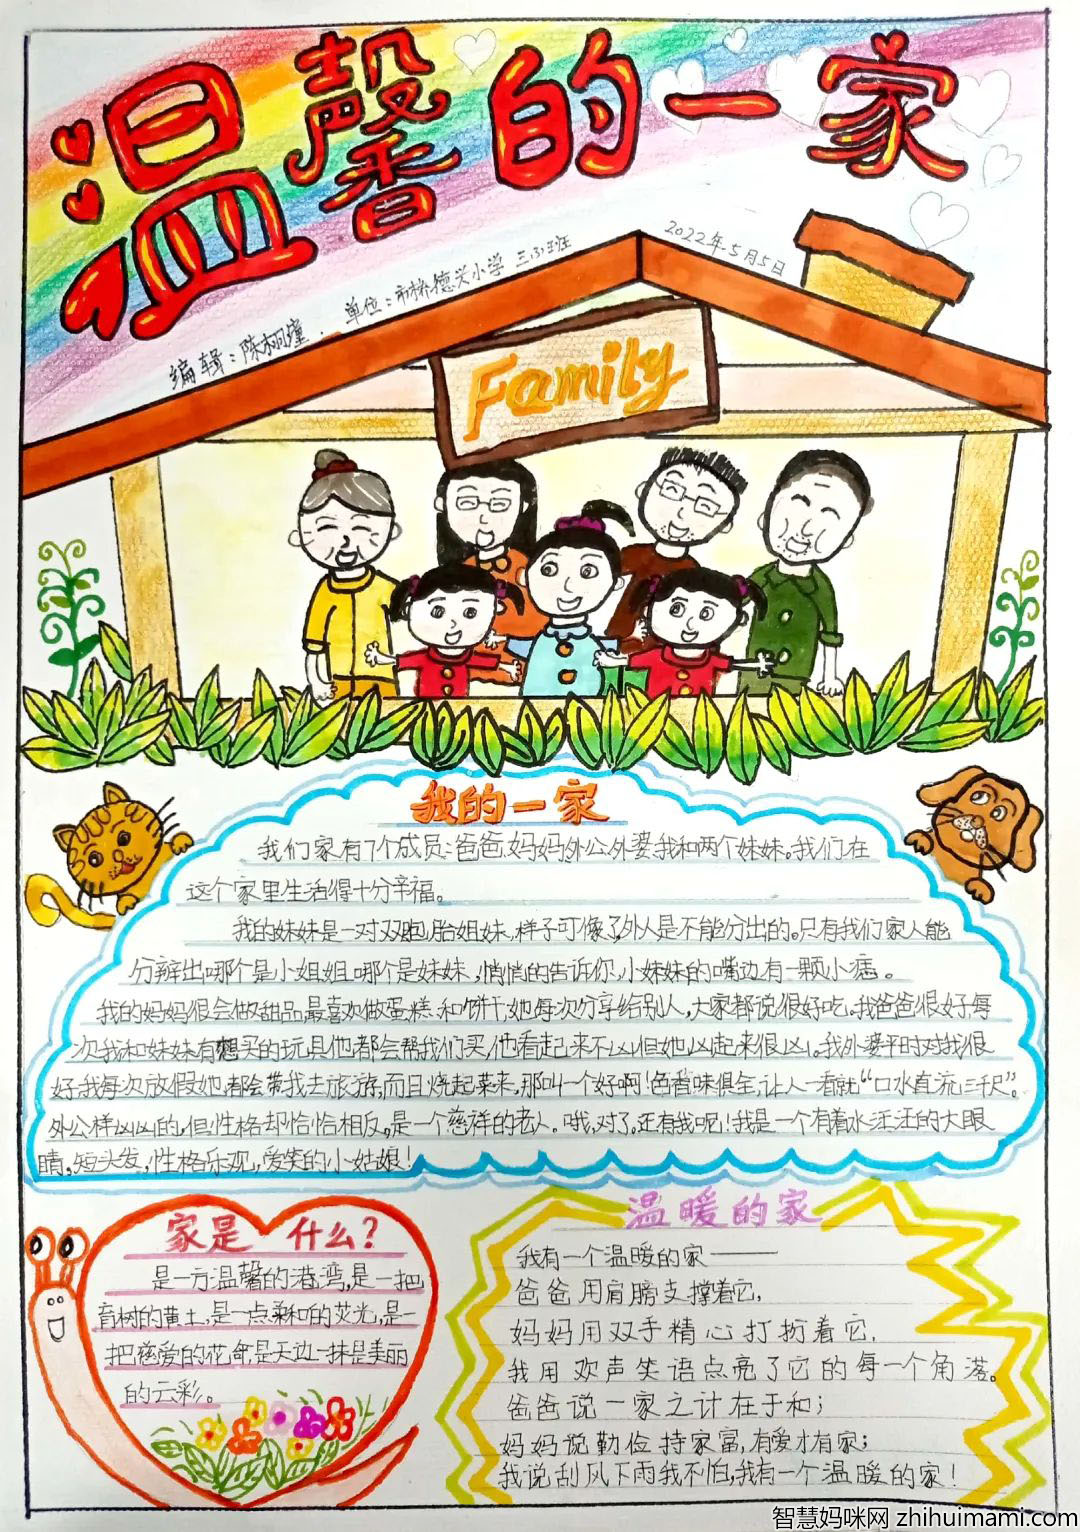 温馨的一家
编辑：陈栩瑾
单位：市林德关小学 三(3)班
2022年5月5日
Family
我的一家
我们家有7个成员：爸爸、妈妈、外公、外婆、我和两个妹妹。我们在
这个家里生活得十分幸福。
我的妹妹是一对双胞胎姐妹，样子可像了，外人是不能分出的。只有我们家人能
分辨出哪个是小姐姐哪个是妹妹，悄悄的告诉你，小妹妹的嘴边有一颗小痣。
我的妈妈很会做甜品，最喜欢做蛋糕和饼干，她每次分享给别人，大家都说很好吃。我爸爸很好，每
次我和妹妹有想买的玩具他都会帮我们买，他看起来不凶，但她凶起来很凶。我外婆平时对我很
好，我每次放假她都会带我去旅游，而且烧起菜来，那叫一个好啊！色香味俱全，让人一看就“口水直流三千尺”。
外公样凶凶的，但性格却恰恰相反，是一个慈祥的老人。哦，对了，还有我呢！我是一个有着水汪汪的大眼
睛，短头发，性格乐观，爱笑的小姑娘！
家是 什么？
是一方温馨的港湾，是一把
育树的黄土，是一点柔和的艾光，是一
把慈爱的花伞，是天边一抹是美丽
的云彩。
温暖的家
我有一个温暖的家——
爸爸用肩膀支撑着它，
妈妈用双手精心打扮着它，
我用欢声笑语点亮了它的每一个角落。
爸爸说一家之计在于和；
妈妈说勤俭持家富，有爱才有家；
我说刮风下雨我不怕，我有一个温暖的家！
智慧妈咪网 zhihuimami.com